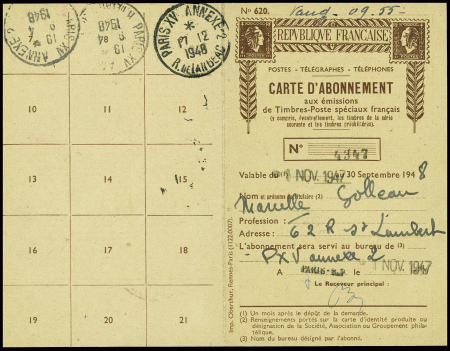 PARIS XV ANNEXE 2
1948
PARIS XV ANNEXE 2
1948
PARIS XV ANNEXE 2
* 
17 12
1948
10 11 12
13 14 15
16 17 18
19 20 21
Imp. Oberthur, Rennes-Paris (1122-0007).
N° 620. Vaug. 09.55-
REPVBLIQVE FRANÇAISE
POSTES - TÉLÉGRAPHES - TÉLÉPHONES
CARTE D'ABONNEMENT
aux émissions
de Timbres-Poste spéciaux français
(y compris, éventuellement, les timbres de la série
courante et les timbres réoblitérés).
N° 4347
Valable du (1) 1 NOV. 1947 30 Septembre 1948
Nom et prénoms du titulaire (2)
Marcelle Golleau
Profession :
Adresse : 62 R St Lambert
L'abonnement sera servi au bureau de (3)
PXV annexe 2
A PARIS le 1 NOV. 1947
Le Receveur principal :
(1) Un mois après le dépôt de la demande.
(2) Renseignements portés sur la carte d'identité produite ou
désignation de la Société, Association ou Groupement phila-
télique.
(3) Nom du bureau désigné par l'abonné.